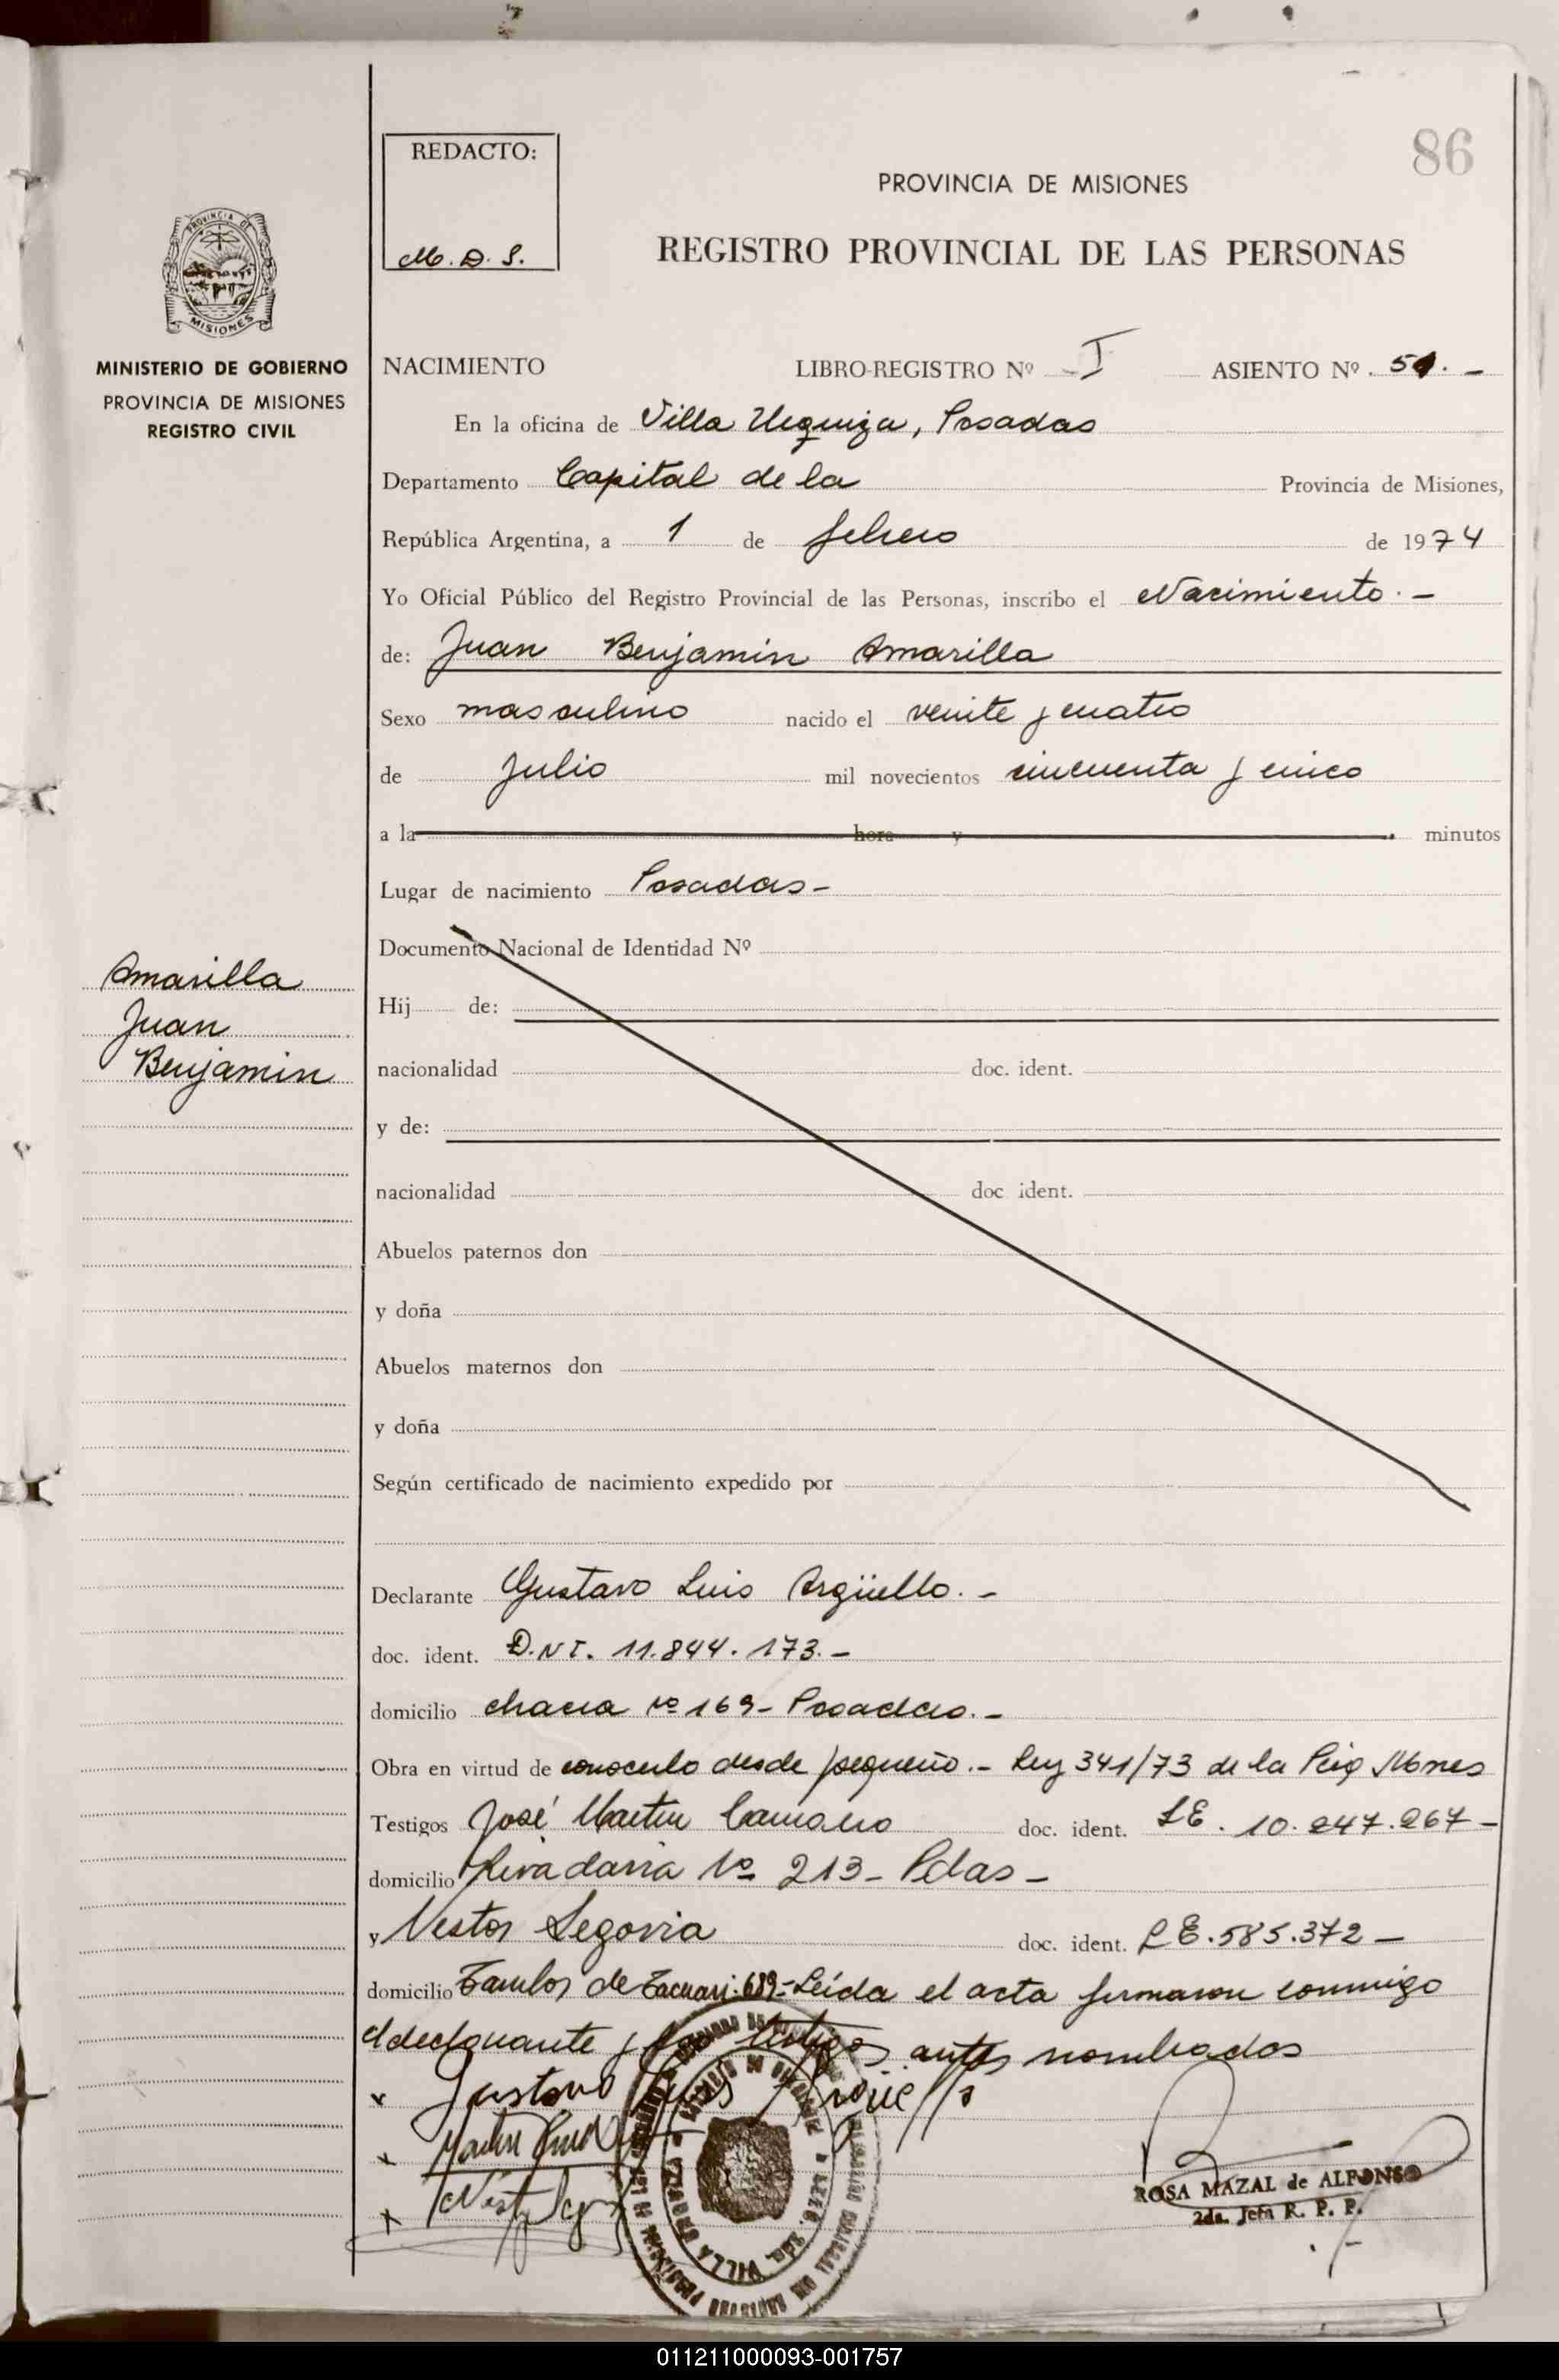 86
REDACTO:
M. D. S.
PROVINCIA DE MISIONES
REGISTRO PROVINCIAL DE LAS PERSONAS
PROVINCIA DE
MISIONES
MINISTERIO DE GOBIERNO
PROVINCIA DE MISIONES
REGISTRO CIVIL
NACIMIENTO LIBRO-REGISTRO Nº I ASIENTO Nº 51. -
En la oficina de Villa Urquiza, Posadas
Departamento Capital de la Provincia de Misiones,
República Argentina, a 1 de febrero de 1974
Yo Oficial Público del Registro Provincial de las Personas, inscribo el Nacimiento. -
de: Juan Benjamin Amarilla
Sexo masculino nacido el veinte y cuatro
de Julio mil novecientos cincuenta y cinco
a la hora y minutos
Lugar de nacimiento Posadas -
Documento Nacional de Identidad Nº
Amarilla
Juan
Benjamin
Hij de:
nacionalidad doc. ident.
y de:
nacionalidad doc ident.
Abuelos paternos don
y doña
Abuelos maternos don
y doña
Según certificado de nacimiento expedido por
Declarante Gustavo Luis Argüello. -
doc. ident. D.N.I. 11.844.173. -
domicilio chacra Nº 169 - Posadas. -
Obra en virtud de conocerlo desde pequeño. - Ley 341/73 de la
Testigos José Martin doc. ident. LE. 10.247.267 -
domicilio Rivadavia Nº 213 - Pdas -
y Nestor Segovia doc. ident. LE. 585.372 -
domicilio Tambor de Tacuari 689 - Leída el acta firmaron conmigo
el declarante y los testigos antes nombrados
x Gustavo Luis Arguello
x Martin
x Nest
VILLA
ROSA MAZAL de ALFONSO
2da. Jefa R. P. P.
011211000093-001757